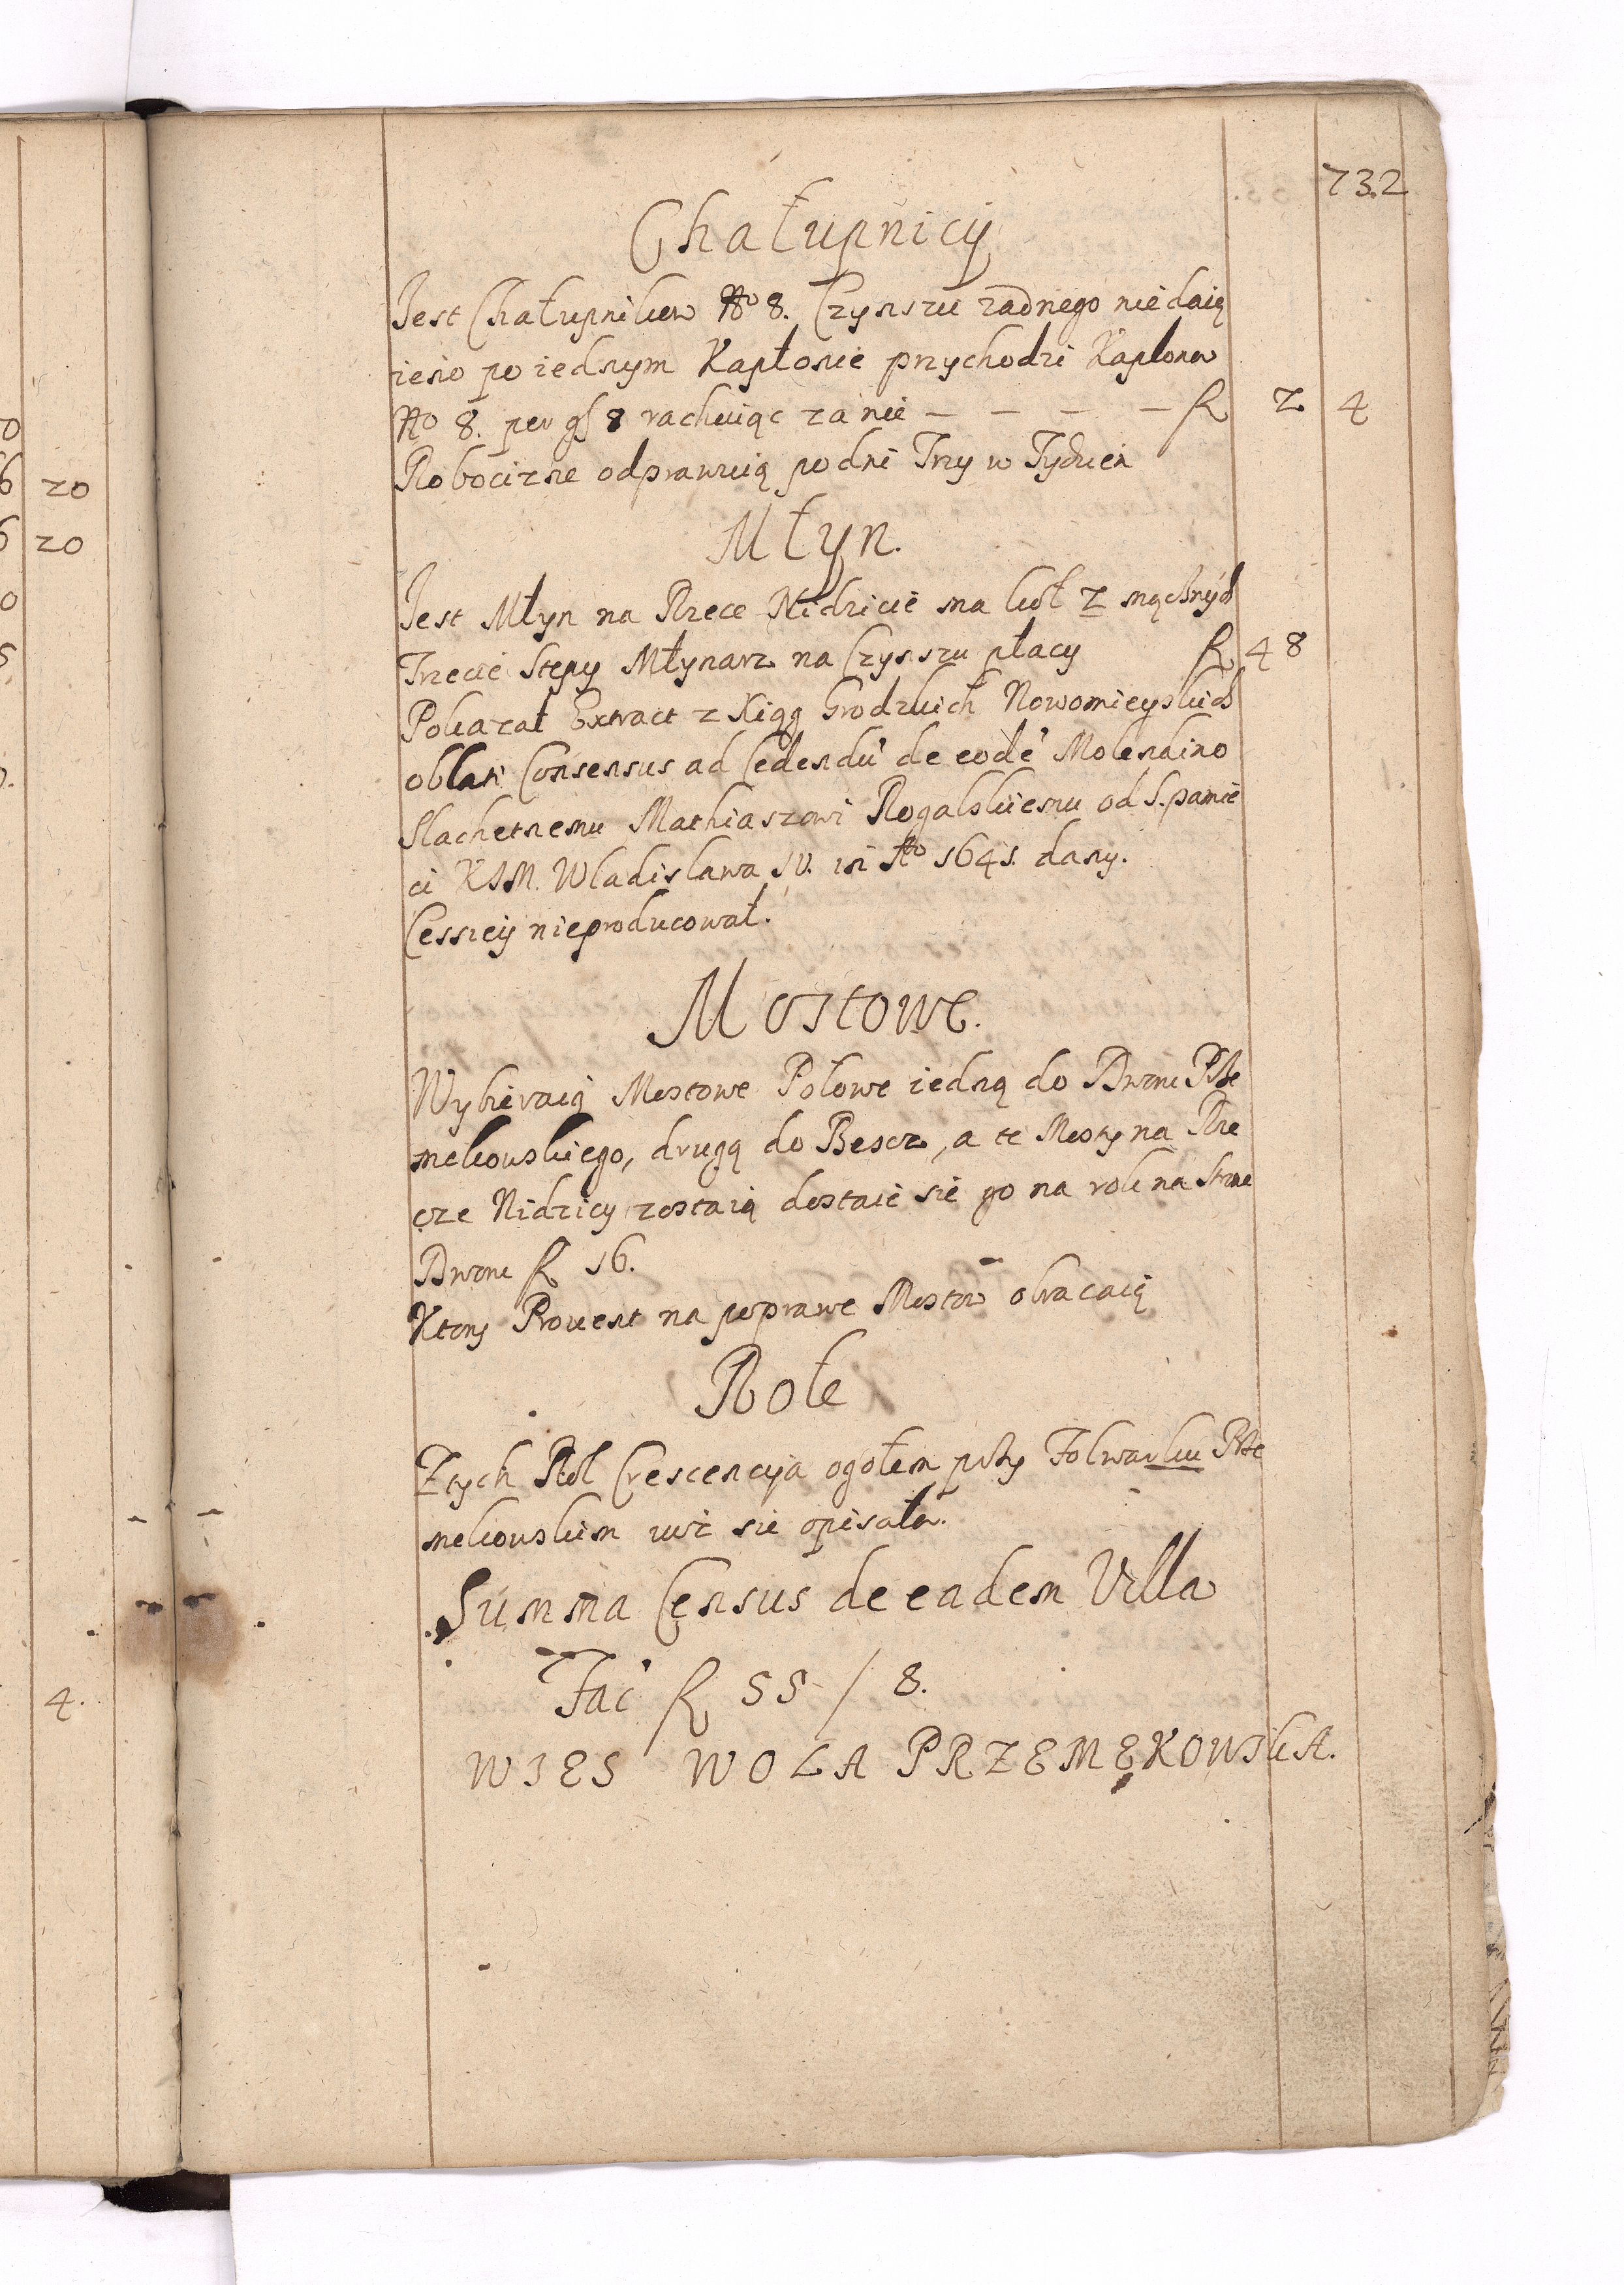 732
Chałupnicy
Jest Chałupnikow No 8. Czynszu zadnego niedaią
ieno po iednym Kapłonie przychodzi Kapłonow
No 8. per gſ 8 rachuiąc za nie — — — — f 2 4
Robocizne odprawuią po dni Trzy w Tydzień
Młyn.
Jest Młyn na Rzece Nidzicie ma kuł 2 mącznych
Trzecie Stępy Młynarz na Czynszu płacy f 48
Pokazał Extract z Xiąg Grodzkich Nowomieyskich
oblat Consensus ad Cedendu de eode Molendino
Slachetnemu Mathiaszowi Rogalskiemu od S. pamie
ci KJM. Wladislawa IV. in Ao 1641. dany.
Cessiey nieproducował.
Mostowe.
Wybieraią Mostowe Połowe iedną do Dworu Prze
mekowskiego, drugą do Bescz, a te Mosty na Rze
cze Nidzicy zostaią dostaie sie go na rok na strone
Dworu f 16.
Ktory Prouent na poprawe Mostow obracaią
Role
Ztych Rol Crescencyja ogołem przy Folwarku Prze
mekowskim iuż sie opisała.
Summa Census de eadem Villa
Fac f 55 / 8.
WIES WOLA PRZEMĘKOWSKA.
20
20
4.